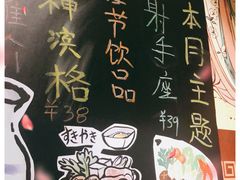 本月主题
射手座
¥39
节饮品
神淡格
¥38
すきやき